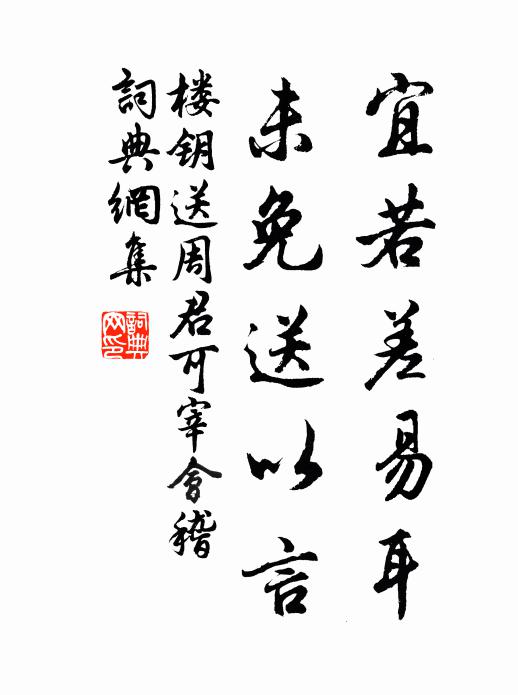 宜若差易耳
未免送以言
楼钥送周君可宰會稽
詞典網集
詞典網印